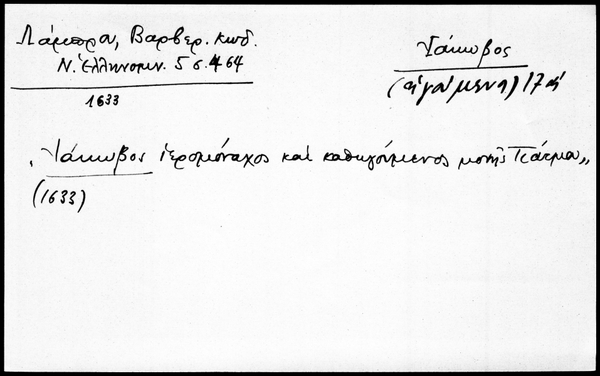 Λάμπρου, Βαρβερ. κωδ.
Ν. Ἑλληνομν. 5 σ. 464
1633
Ἰάκωβος
(ἡγούμενος) 17 ά
"Ἰάκωβος ἱερομόναχος καὶ καθηγούμενος μονῆς Πάτμου"
(1633)